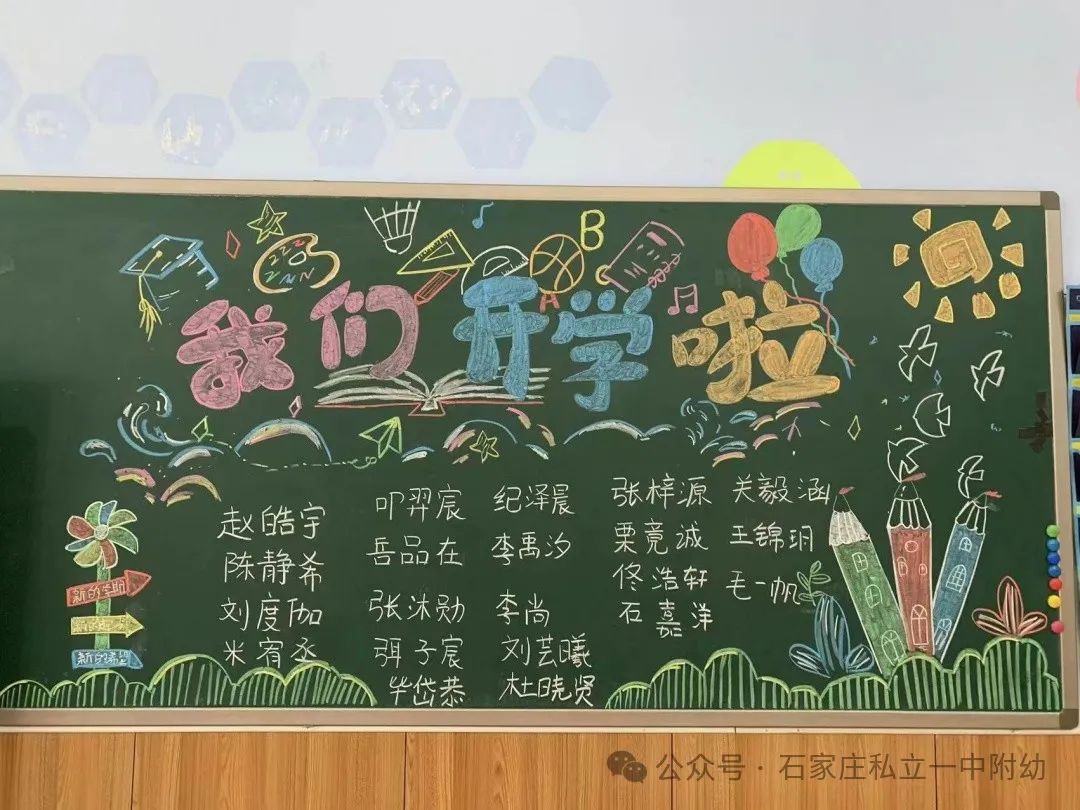 B
我们开学啦
赵皓宇
陈静希
刘度伽
米宥丞
叩羿宸
岳品在
张沐勋
弭子宸
毕岱恭
纪泽晨
李禹汐
李尚
刘芸曦
杜晓贤
张梓源
栗竞诚
佟浩轩
石嘉洋
关毅涵
王锦玥
毛一帆
新的学期
新的希望
公众号·石家庄私立一中附幼